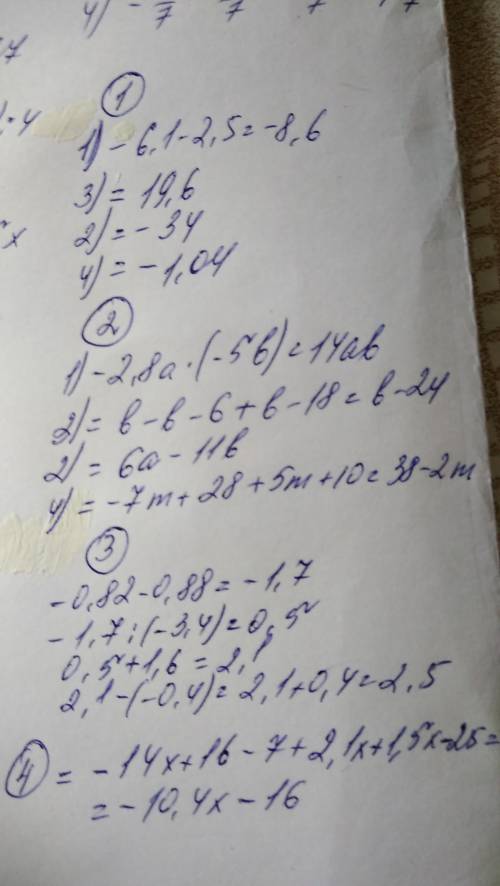 4) - /7 7 7 7
7
4
x
①
1) - 6,1 - 2,5 = -8,6
3) = 19,6
2) = - 34
4) = - 1,04
②
1) - 2,8a · (-5b) = 14ab
3) = b - b - 6 + b - 18 = b - 24
2) = 6a - 11b
4) = -7m + 28 + 5m + 10 = 38 - 2m
③
-0,82 - 0,88 = -1,7
-1,7 : (-3,4) = 0,5
0,5 + 1,6 = 2,1
2,1 - (-0,4) = 2,1 + 0,4 = 2,5
④ = -14x + 16 - 7 + 2,1x + 1,5x - 25 =
= -10,4x - 16